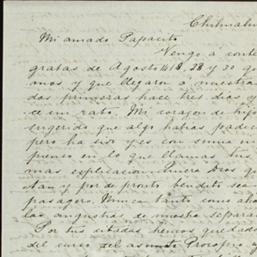 Chihuahua
Mi amado Papacito
Vengo á conte
gratas de Agosto 18, 28 y 30 que
anos y que llegaron á nuestras
das primeras hace tres dias y
ce un rato. Mi corazon de hijo
sugerido que algo habias padeci
pero ha sido y es con suma
pienso en lo que llamas tus
mas esplicacion. Quiera Dios que
tan y por de pronto bendito sea
pasagero. Nunca tanto como aho
las angustias de nuestra separa
Por tus citadas hemos quedado
del curso del asunto Procopio y